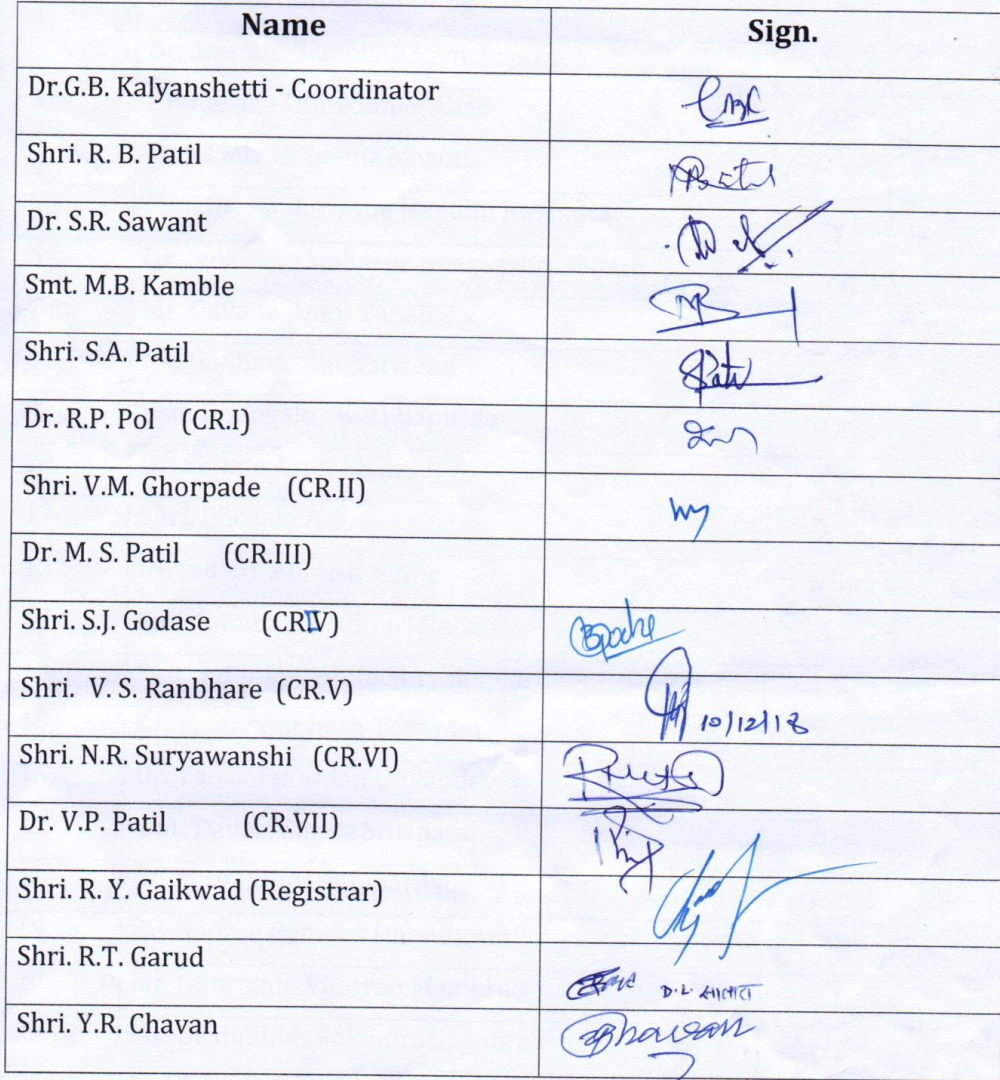 Name Sign.
Dr.G.B. Kalyanshetti - Coordinator
Shri. R. B. Patil
Dr. S.R. Sawant
Smt. M.B. Kamble
Shri. S.A. Patil SPatil
Dr. R.P. Pol (CR.I)
Shri. V.M. Ghorpade (CR.II)
Dr. M. S. Patil (CR.III)
Shri. S.J. Godase (CRIV)
Shri. V. S. Ranbhare (CR.V) 10/12/18
Shri. N.R. Suryawanshi (CR.VI)
Dr. V.P. Patil (CR.VII)
Shri. R. Y. Gaikwad (Registrar)
Shri. R.T. Garud D.L.
Shri. Y.R. Chavan